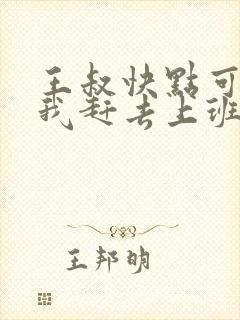 王叔快點可
我赶去上班
王邦明